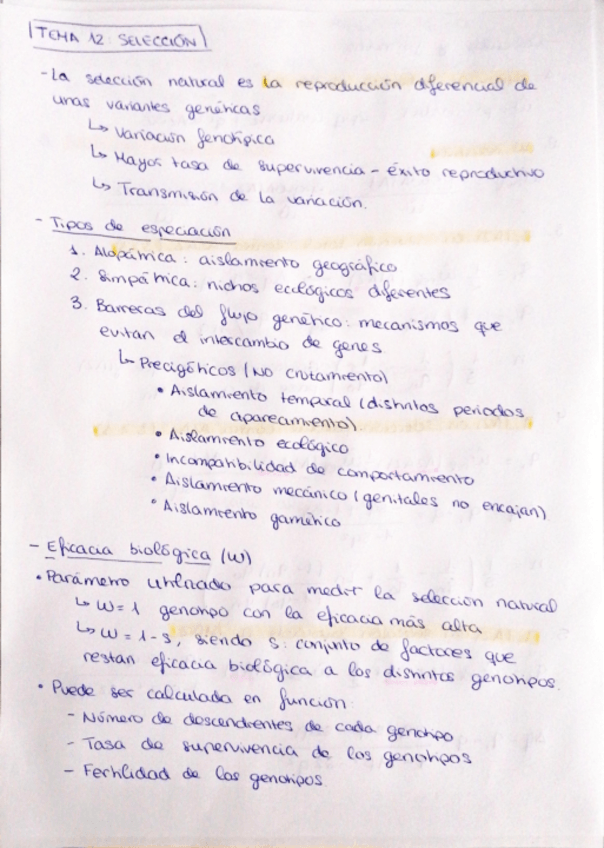 TEMA 12: SELECCIÓN
- La selección natural es la reproducción diferencial de
unas variantes genéticas
↳ Variación fenotípica
↳ Mayor tasa de supervivencia - éxito reproductivo
↳ Transmisión de la variación.
- Tipos de especiación
1. Alopátrica: aislamiento geográfico
2. Simpátrica: nichos ecológicos diferentes
3. Barreras del flujo genético: mecanismos que
evitan el intercambio de genes
↳ Precigóticos (No cruzamiento)
• Aislamiento temporal (distintos periodos
de apareamiento)
• Aislamiento ecológico
• Incompatibilidad de comportamiento
• Aislamiento mecánico (genitales no encajan)
• Aislamiento gamético
- Eficacia biológica (W)
• Parámetro utilizado para medir la selección natural
↳ W = 1 genotipo con la eficacia más alta
↳ W = 1-s, siendo s: conjunto de factores que
restan eficacia biológica a los distintos genotipos.
• Puede ser calculada en función:
- Número de descendientes de cada genotipo
- Tasa de supervivencia de los genotipos
- Fertilidad de los genotipos.